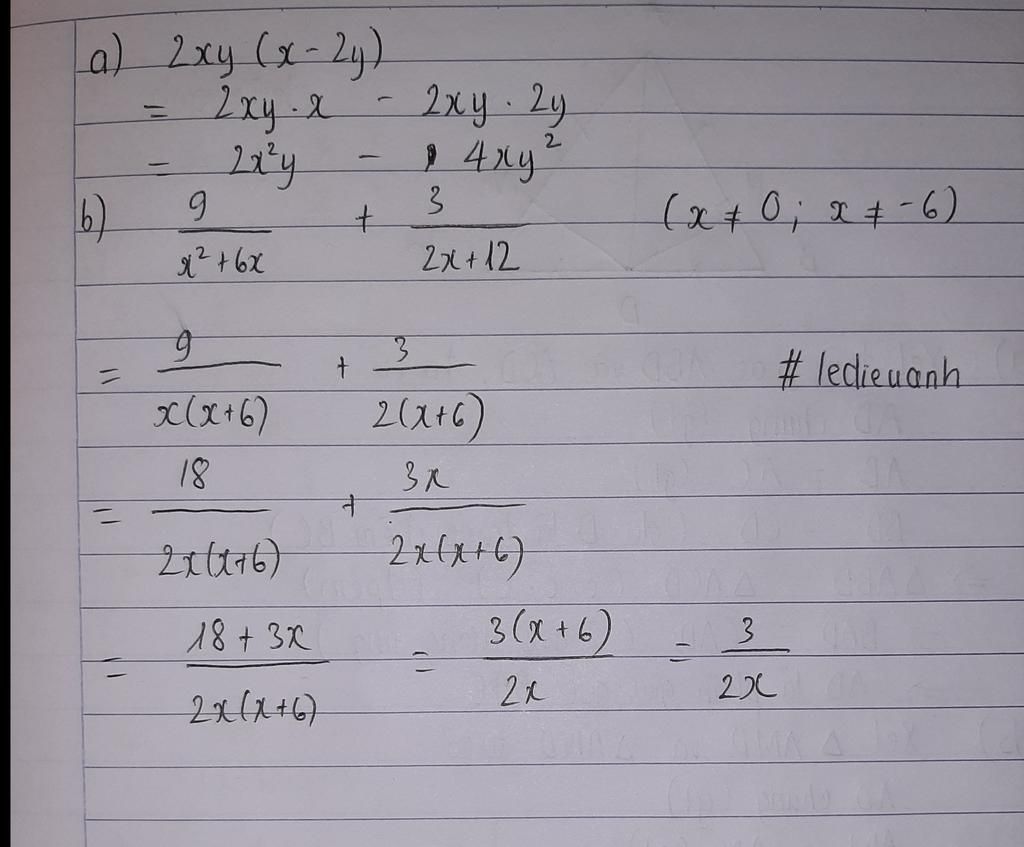 a) 2xy (x - 2y)
= 2xy . x - 2xy . 2y
= 2x²y - 4xy²
b) 9/(x² + 6x) + 3/(2x + 12) (x ≠ 0; x ≠ -6)
= 9/(x(x+6)) + 3/(2(x+6))
# ledieuanh
= 18/(2x(x+6)) + 3x/(2x(x+6))
= (18 + 3x)/(2x(x+6)) = 3(x+6)/(2x) = 3/(2x)